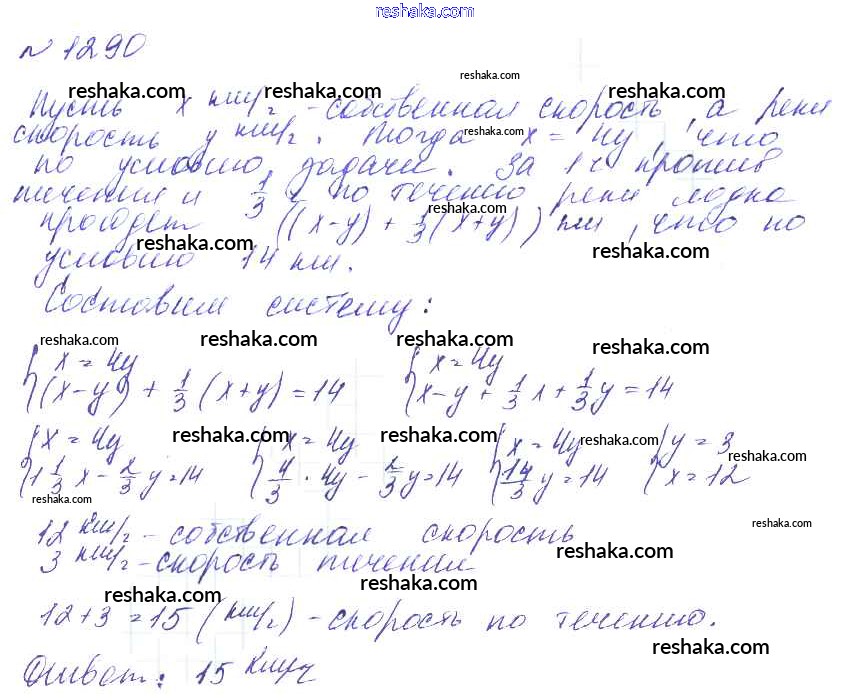 reshaka.com
№ 1290
reshaka.com
reshaka.com reshaka.com reshaka.com
Пусть x км/ч - собственная скорость, а реки
скорость y км/ч. Тогда reshaka.com x = 4y, что
по условию задачи. За 1 ч против
течения и 1/3 ч по течению реки лодка
reshaka.com
пройдет ((x-y) + 1/3 (x+y)) км, что по
reshaka.com reshaka.com
условию 14 км.
Составим систему:
reshaka.com reshaka.com reshaka.com reshaka.com
{ x = 4y { x = 4y
(x-y) + 1/3 (x+y) = 14 x - y + 1/3 x + 1/3 y = 14
reshaka.com reshaka.com reshaka.com reshaka.com
{ x = 4y { x = 4y { x = 4y { y = 3
1 1/3 x - 2/3 y = 14 4/3 · 4y - 2/3 y = 14 14/3 y = 14 x = 12
reshaka.com
12 км/ч - собственная скорость reshaka.com
3 км/ч - скорость течения reshaka.com
reshaka.com reshaka.com
12 + 3 = 15 (км/ч) - скорость по течению.
reshaka.com reshaka.com
Ответ: 15 км/ч